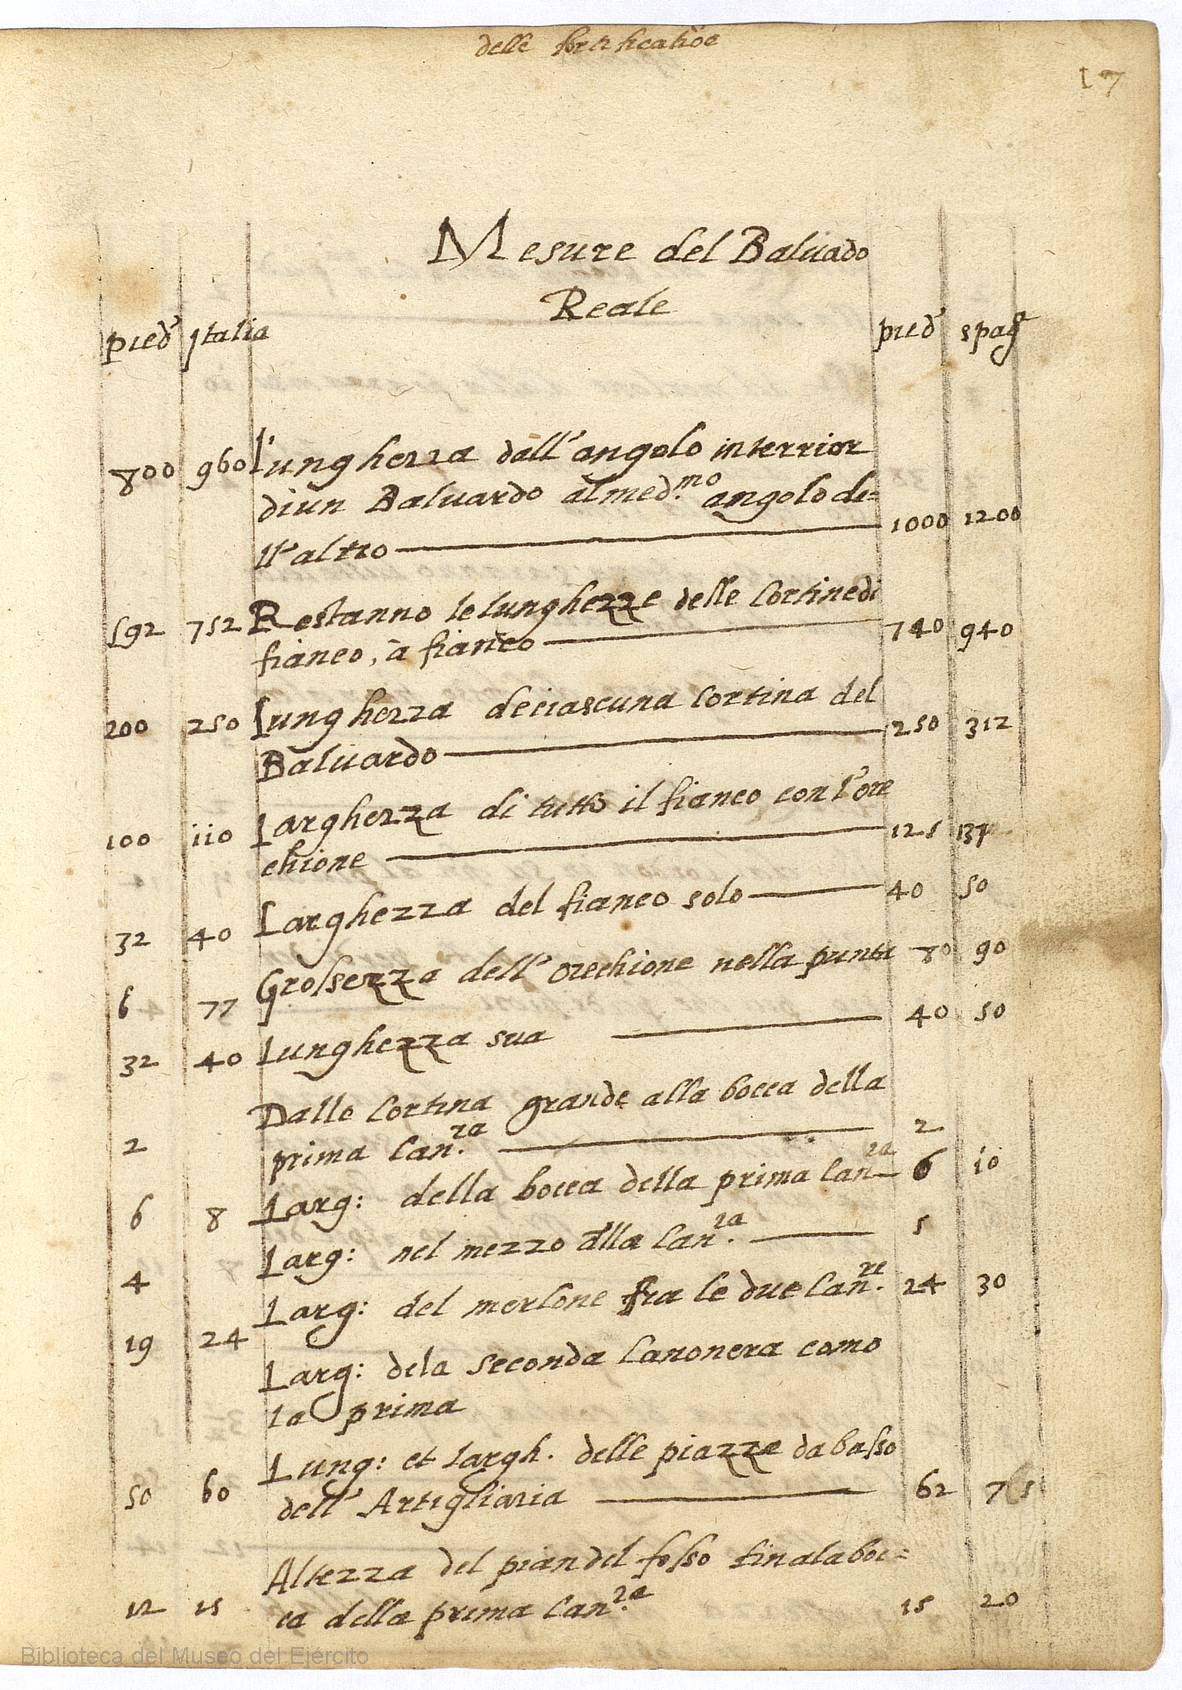 delle fortificatiōe
17
Mesure del Baluado
Reale
pied' Italia pied' spag
800 960 L'ungherza dall' angolo interrior
diun Baluardo almed.mo angolo de=
ll'altro 1000 1200
592 752 Restanno le lunghezze delle Cortinedi
fianco, à fianco 740 940
200 250 Lungherza deciascuna Cortina del
Baluardo 250 312
100 110 Largherza di tutto il fianco con l'ore
chione 125 137
32 40 Larghezza del fianco solo 40 50
6 77 Grossezza dell' orechione nella punta 80 90
32 40 Lunghezza sua 40 50
2 Dalle Cortina grande alla bocca della
prima Can.ra 2
6 8 Larg: della bocca della prima Canra 6 10
4 Larg: nel mezzo dlla Can.ra 5
19 24 Larg: del merlone fra le due Can.re 24 30
Larg: dela seconda Canonera como
La prima
50 60 Lung: et Largh. delle piazze dabasso
dell' Artigliaria 62 75
12 15 Altezza del piandel fosso finalaboc=
ca della prima Can.ra 15 20
Biblioteca del Museo del Ejército